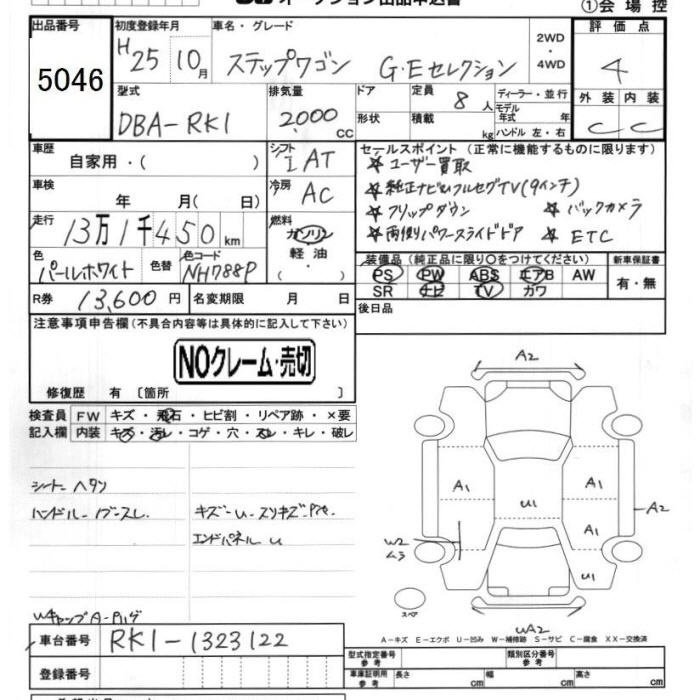 オークション出品申込書 ①会場控
出品番号 初度登録年月 車名・グレード 2WD・4WD 評価点
5046 H25 10月 ステップワゴン G・Eセレクション 4
型式 排気量 ドア 定員 8人 ディーラー・並行 外装 内装
DBA-RK1 2,000cc 形状 積載 kg モデル年式 年式 ハンドル 左・右 C C
車歴 自家用・( ) シフト IAT セールスポイント (正常に機能するものに限ります)
☆ユーザー買取
車検 年 月( 日) 冷房 AC ☆純正ナビ フルセグTV(9インチ)
走行 13万1千450km 燃料 ガソリン 軽油 ・ ☆フリップダウン ☆バックカメラ
☆両側パワースライドドア ☆ETC
色 パールホワイト 色替 色コード NH788P
装備品 (純正品に限り○をつけてください) 新車保証書
PS PW ABS エアB AW 有・無
SR ナビ TV カワ
R券 13,600円 名変期限 月 日 後日品
注意事項申告欄(不具合内容等は具体的に記入して下さい)
NOクレーム・売切
修復歴 有 〔箇所 〕
A2
検査員 FW キズ・飛石・ヒビ割・リペア跡・×要
記入欄 内装 キズ・汚レ・コゲ・穴・スレ・キレ・破レ
シート ヘタリ
ハンドル
キズ U スリキズ
エンドパネル U
A1 U1 A1 A2
W2 ムラ A1
U1
スペア
UA2
A-キズ E-エクボ U-凹み W-補修跡 S-サビ C-腐食 XX-交換済
車台番号 RK1-1323122
型式指定番号 参考 類別区分番号 参考
登録番号 車庫証明用 参考 長さ cm 幅 cm 高さ cm